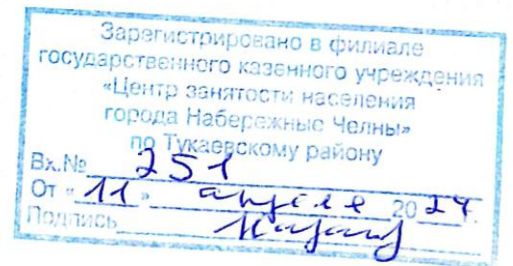 Зарегистрировано в филиале
государственного казенного учреждения
«Центр занятости населения
города Набережные Челны»
по Тукаевскому району
Вх.№ 251
От «11» апреля 2024 г.
Подпись